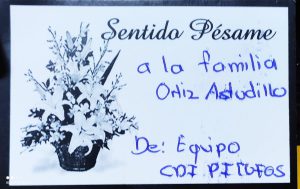 Sentido Pésame
a la familia
Ortiz Astudillo
De: Equipo
CDI PITUFOS